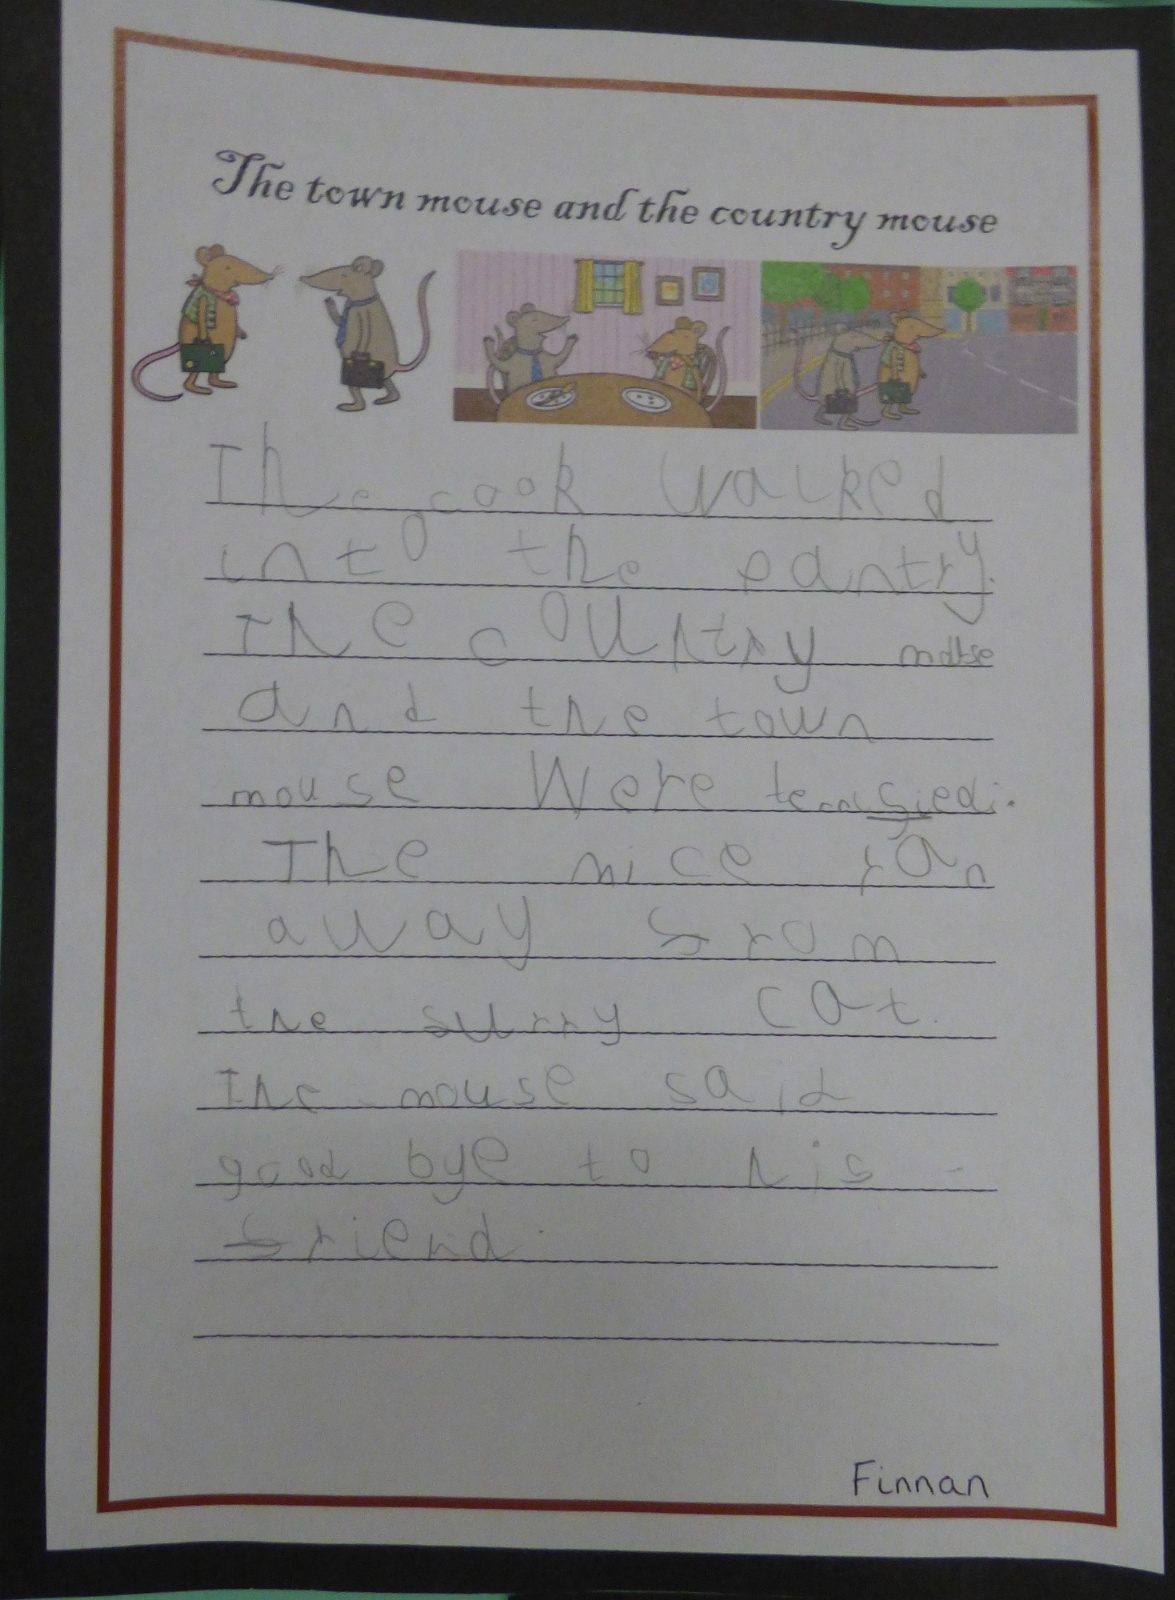 The town mouse and the country mouse
The cook walked
into the pantry.
The country mouse
and the town
mouse were terrified.
The mice ran
away from
the surry cat.
The mouse said
good bye to his
friend.
Finnan